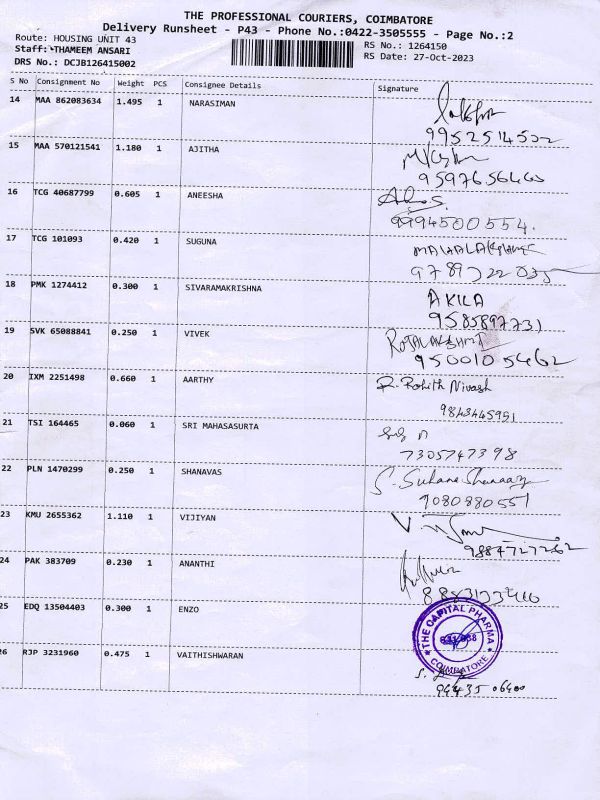 THE PROFESSIONAL COURIERS, COIMBATORE
Delivery Runsheet - P43 - Phone No.:0422-3505555 - Page No.:2
Route: HOUSING UNIT 43 RS No.: 1264150
Staff: THAMEEM ANSARI RS Date: 27-Oct-2023
DRS No.: DCJB126415002
S No Consignment No Weight PCS Consignee Details Signature
14 MAA 862083634 1.495 1 NARASIMAN
15 MAA 570121541 1.180 1 AJITHA
16 TCG 40687799 0.605 1 ANEESHA
9994500554.
17 TCG 101093 0.420 1 SUGUNA
18 PMK 1274412 0.300 1 SIVARAMAKRISHNA AKILA
9585897731
19 SVK 65088841 0.250 1 VIVEK
9500105462
20 IXM 2251498 0.660 1 AARTHY R. Rohith Nivash
9843445951
21 TSI 164465 0.060 1 SRI MAHASASURTA
7305747398
22 PLN 1470299 0.250 1 SHANAVAS
9080880551
23 KMU 2655362 1.110 1 VIJIYAN
24 PAK 383709 0.230 1 ANANTHI
25 EDQ 13504403 0.300 1 ENZO
THE CAPITAL PHARMA
COIMBATORE
26 RJP 3231960 0.475 1 VAITHISHWARAN
94435 06400